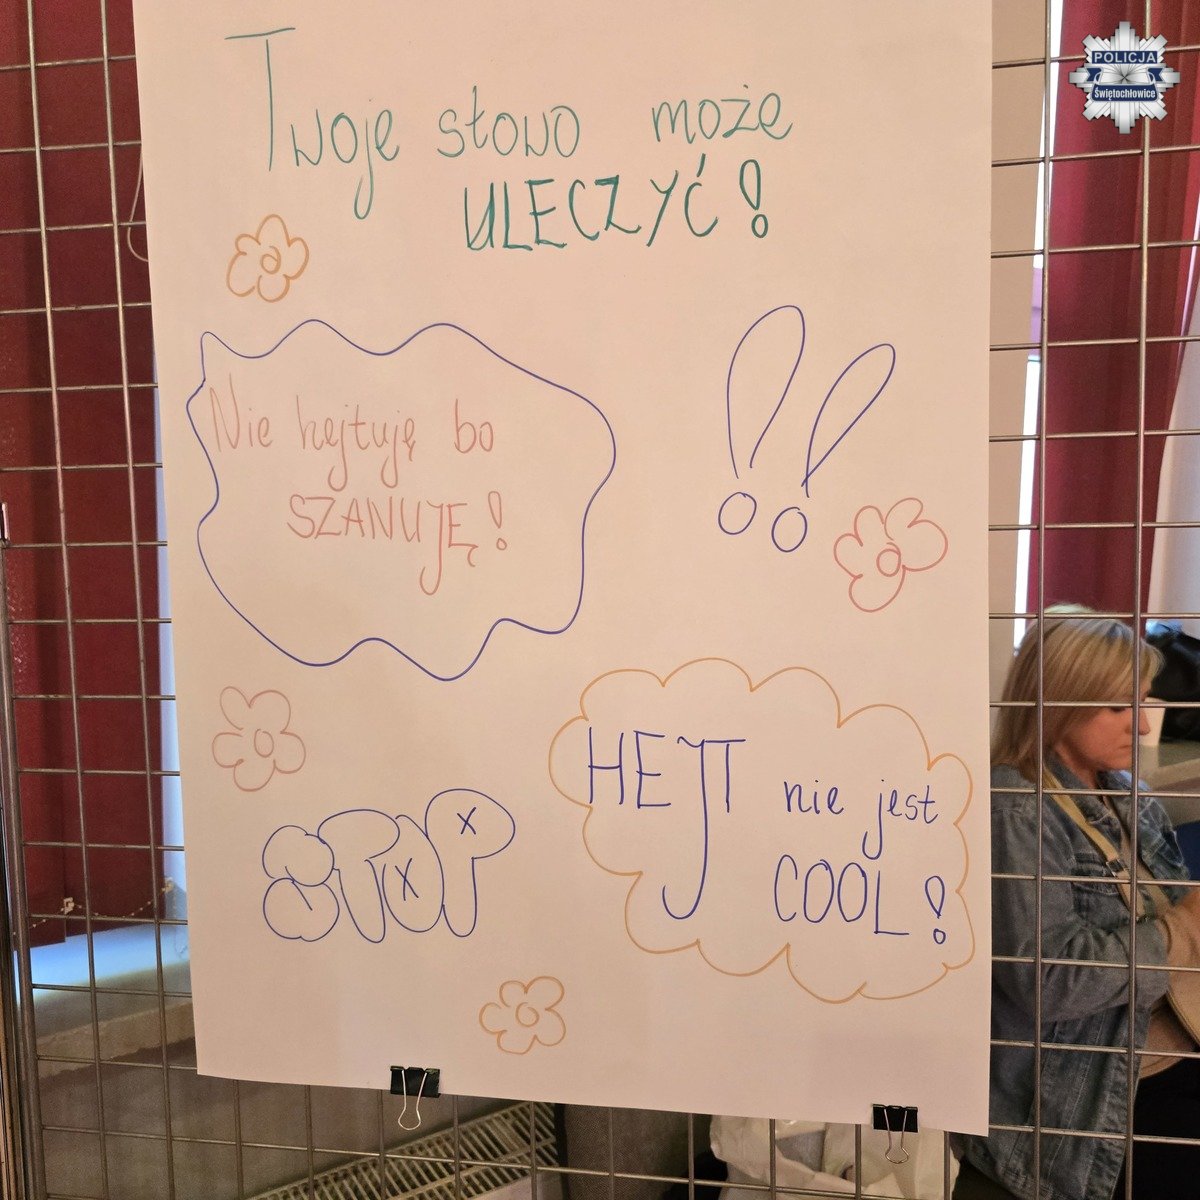 POLICJA
Świętochłowice
Twoje słowo może
ULECZYĆ!
Nie hejtuję bo
SZANUJĘ!
!!
HEJT nie jest
COOL!
STOP